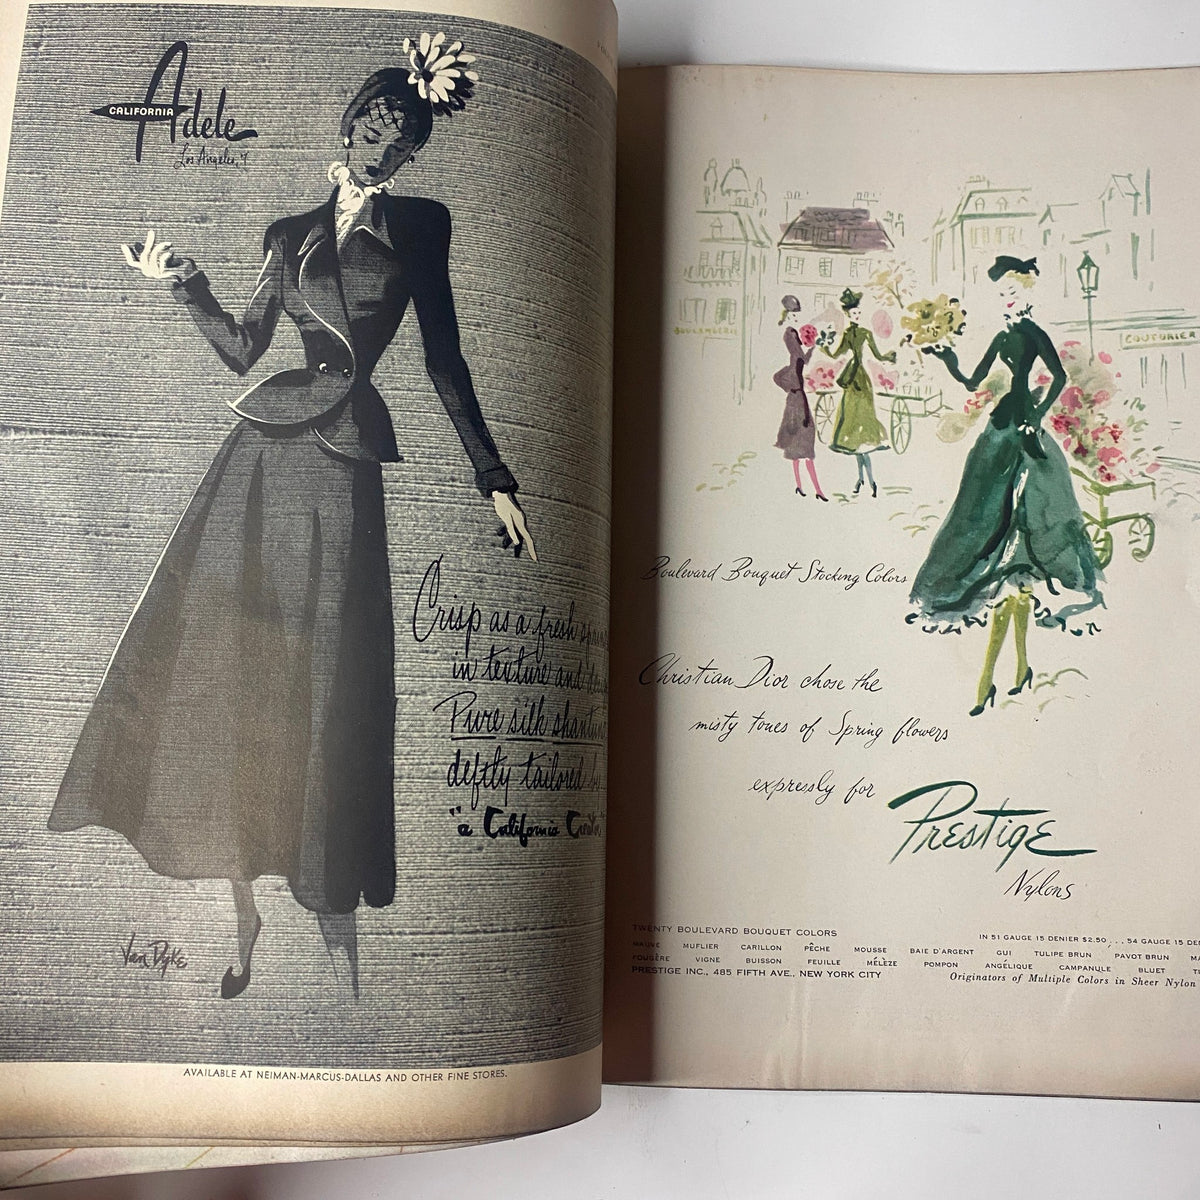 Adele
CALIFORNIA
Los Angeles, 7
Crisp as a fresh
in texture and
Pure silk
deftly tailored
"a California
Van Dyke
AVAILABLE AT NEIMAN-MARCUS-DALLAS AND OTHER FINE STORES.
BOULANGERIE
COUTURIER
Boulevard Bouquet Stocking Colors
Christian Dior chose the
misty tones of Spring flowers
expressly for
Prestige
Nylons
TWENTY BOULEVARD BOUQUET COLORS
IN 51 GAUGE 15 DENIER $2.50 . . . 54 GAUGE 15
MAUVE MUFLIER CARILLON PÊCHE MOUSSE BAIE D'ARGENT GUI TULIPE BRUN PAVOT BRUN
FOUGÈRE VIGNE BUISSON FEUILLE MÉLÈZE POMPON ANGÉLIQUE CAMPANULE BLUET
PRESTIGE INC., 485 FIFTH AVE., NEW YORK CITY
Originators of Multiple Colors in Sheer Nylon